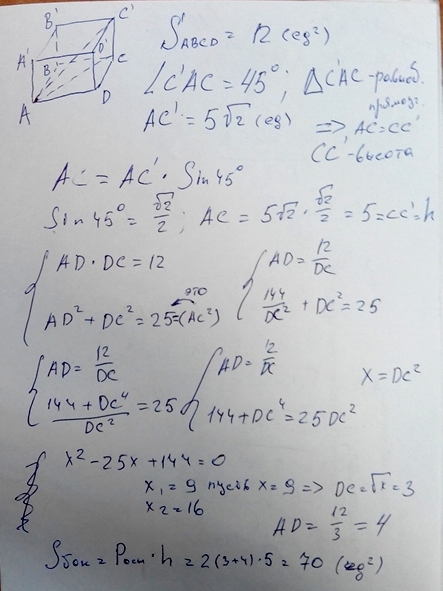 B' C'
A' D'
B C
A D
S ABCD = 12 (ед²)
∠C'AC = 45°; △C'AC - равноб. прямоуг.
AC' = 5√2 (ед) => AC = CC'
CC' - высота
AC = AC' · Sin 45°
Sin 45° = √2/2; AC = 5√2 · √2/2 = 5 = CC' = h
{ AD · DC = 12 { AD = 12/DC
это
AD² + DC² = 25 = (AC²) 144/DC² + DC² = 25
{ AD = 12/DC { AD = 12/DC X = DC²
(144 + DC⁴)/DC² = 25 144 + DC⁴ = 25DC²
x² - 25x + 144 = 0
x₁ = 9 пусть x = 9 => DC = √x = 3
x₂ = 16
AD = 12/3 = 4
Sбок = Pосн · h = 2(3+4) · 5 = 70 (ед²)